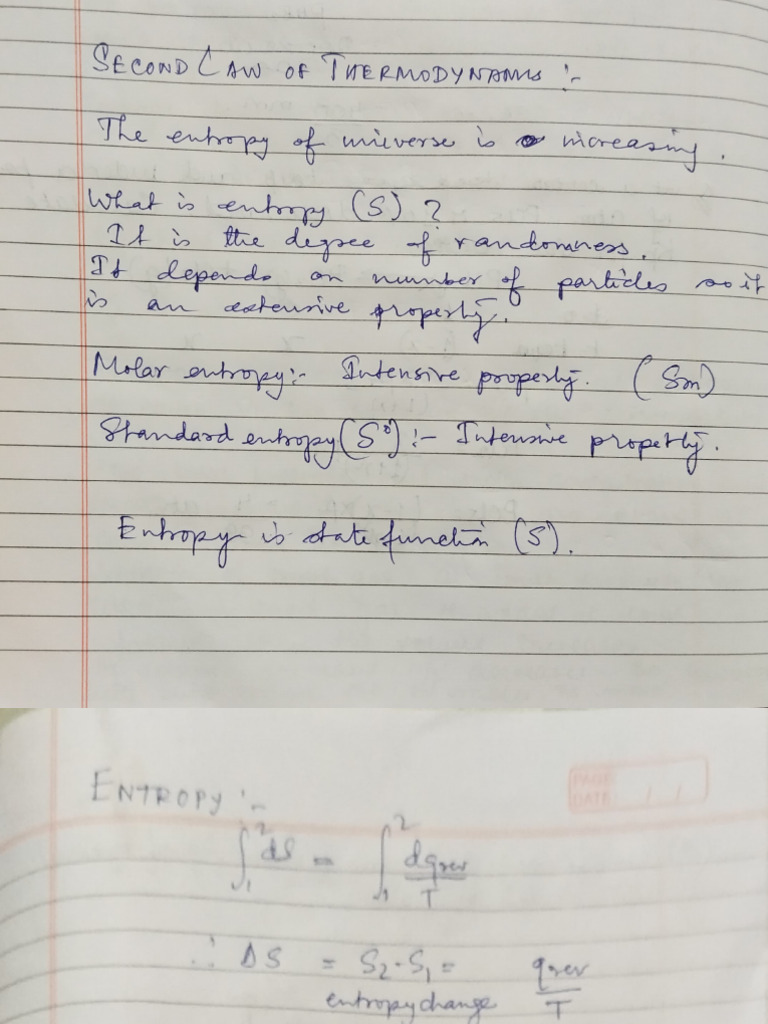 SECOND LAW OF THERMODYNAMIS :-
The entropy of universe is increasing.
What is entropy (S) ?
It is the degree of randomness.
It depends on number of particles so it
is an extensive property.
Molar entropy:- Intensive property. (Sm)
Standard entropy (S°) :- Intensive property.
Entropy is state function (S).
PAGE
DATE / /
ENTROPY :-
∫₁² dS = ∫₁² dqrev/T
∴ ΔS = S₂-S₁ = qrev/T
entropy change